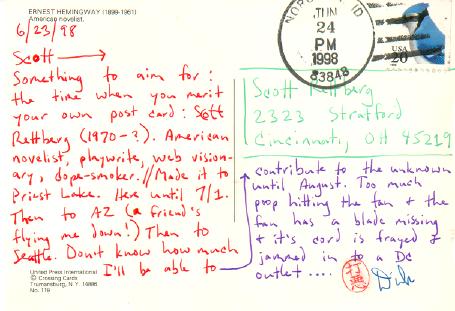 ERNEST HEMINGWAY (1899-1961)
American novelist.
6/23/98
Scott
Something to aim for :
the time when you merit
your own post card : Scott
Rettberg (1970-?). American
novelist, playwrite, web vision-
ary, dope-smoker. // Made it to
Priest Lake. Here until 7/1.
Then to AZ (a friend's
flying me down!) Then to
Seattle. Don't know how much
I'll be able to
United Press International
© Crossing Cards
Trumansburg, N.Y. 14886
No. 119
JUN
24
PM
1998
83848
USA
20
Scott Rettberg
2323 Stratford
Cincinnati, OH 45219
contribute to the unknown
until August. Too much
poop hitting the fan & the
fan has a blade missing
& it's cord is frayed &
jammed in to a DC
outlet ....
Dirk